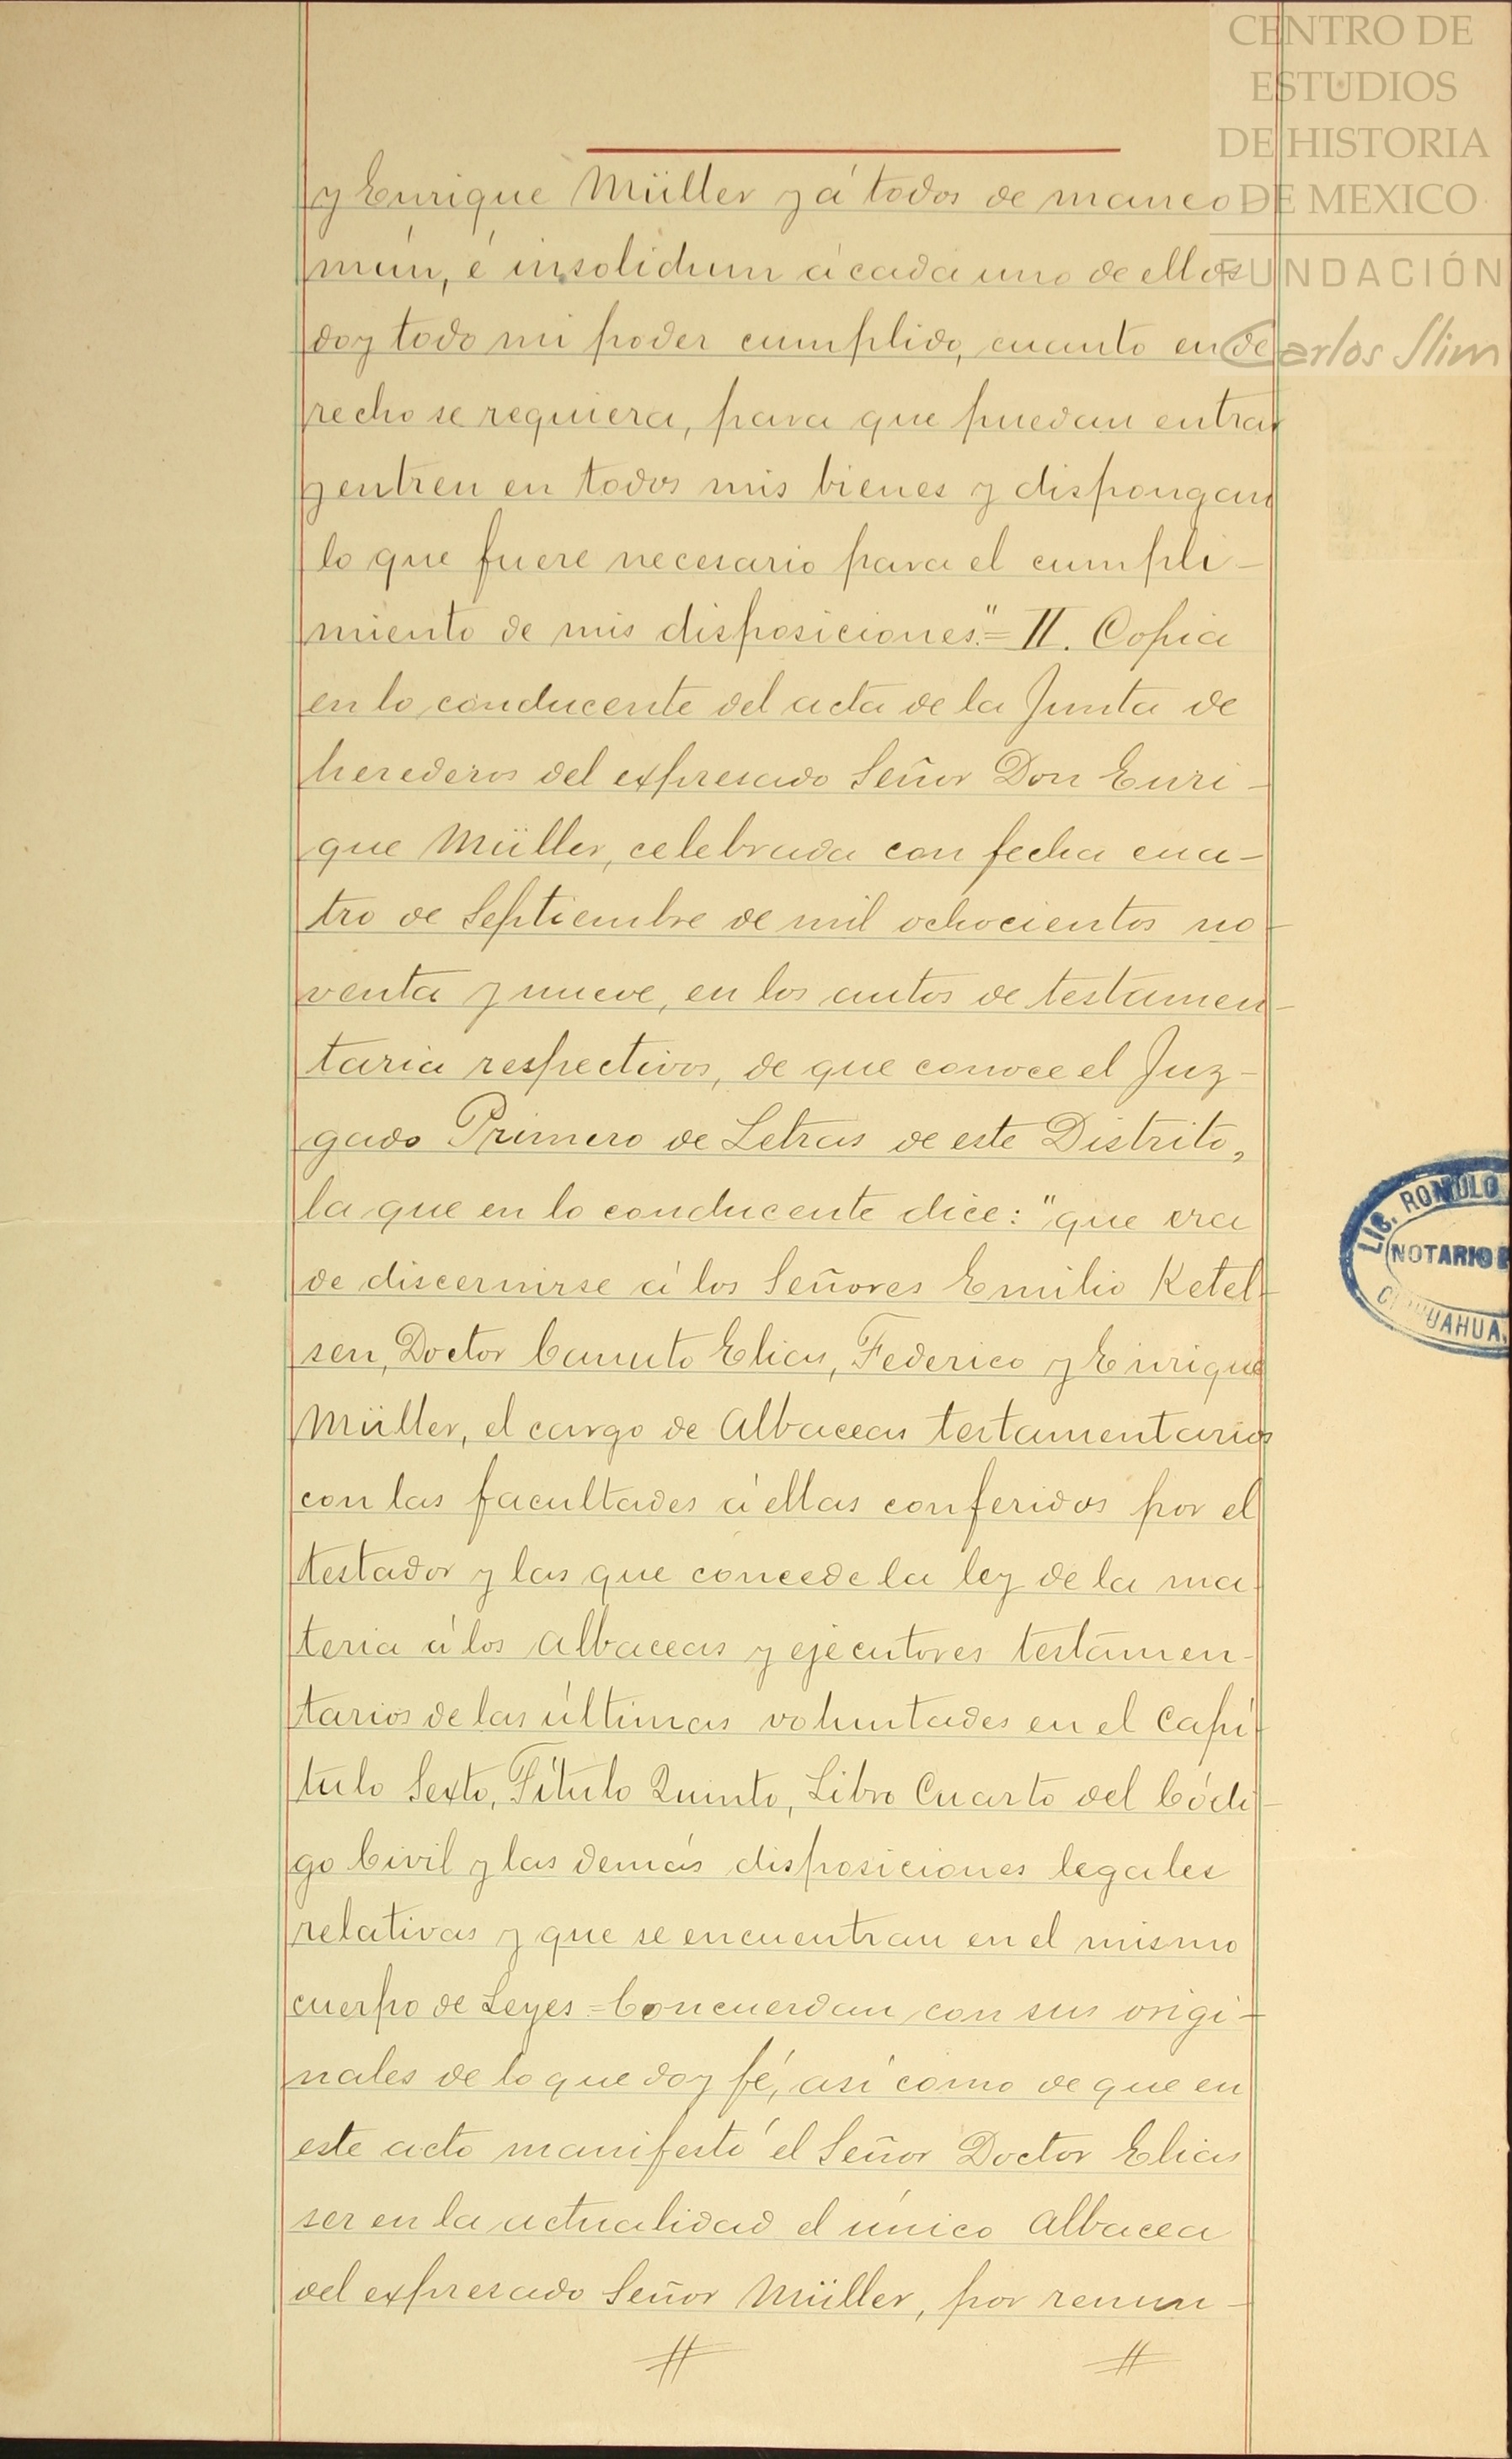 CENTRO DE
ESTUDIOS
DE HISTORIA
DE MEXICO
FUNDACIÓN
Carlos Slim
y Enrique Müller y á todos de manco
mún, é insolidum á cada uno de ellos
doy todo mi poder cumplido, cuanto en de
recho se requiera, para que puedan entrar
y entren en todos mis bienes y dispongan
lo que fuere necesario para el cumpli-
miento de mis disposiciones."= II. Copia
en lo conducente del acta de la Junta de
herederos del expresado Señor Don Enri-
que Müller, celebrada con fecha cua-
tro de Septiembre de mil ochocientos no-
venta y nueve, en los autos de testamen-
taria respectivos, de que conoce el Juz-
gado Primero de Letras de este Distrito,
la que en lo conducente dice: "que era
de discernirse á los Señores Emilio Ketel-
sen, Doctor Canuto Elias, Federico y Enrique
Müller, el cargo de Albaceas testamentarios
con las facultades á ellas conferidos por el
testador y las que concede la ley de la ma-
teria á los albaceas y ejecutores testamen-
tarios de las últimas voluntades en el Capí-
tulo Sexto, Título Quinto, Libro Cuarto del Códi-
go Civil y las demás disposiciones legales
relativas y que se encuentran en el mismo
cuerpo de Leyes = Concuerdan con sus origi-
nales de lo que doy fé, así como de que en
este acto manifestó el Señor Doctor Elias
ser en la actualidad el único Albacea
del expresado Señor Müller, por renun-
LIC. ROMULO
NOTARIO
CHIHUAHUA.